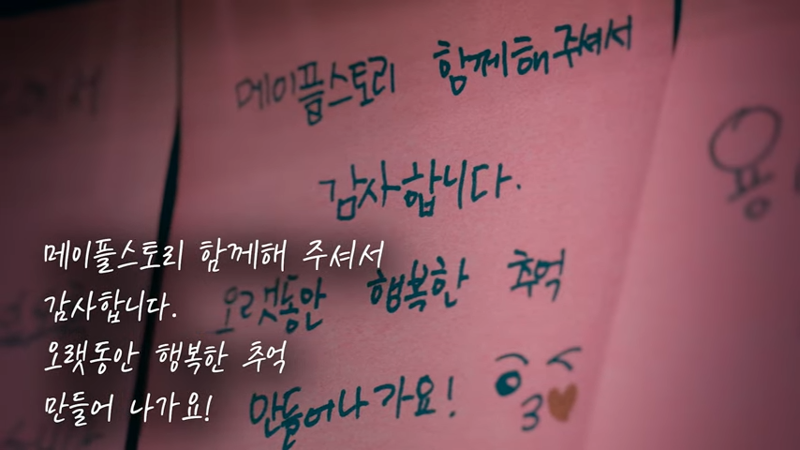 메이플스토리 함께해주셔서
감사합니다.
오랫동안 행복한 추억
만들어나가요!
메이플스토리 함께해 주셔서
감사합니다.
오랫동안 행복한 추억
만들어 나가요!